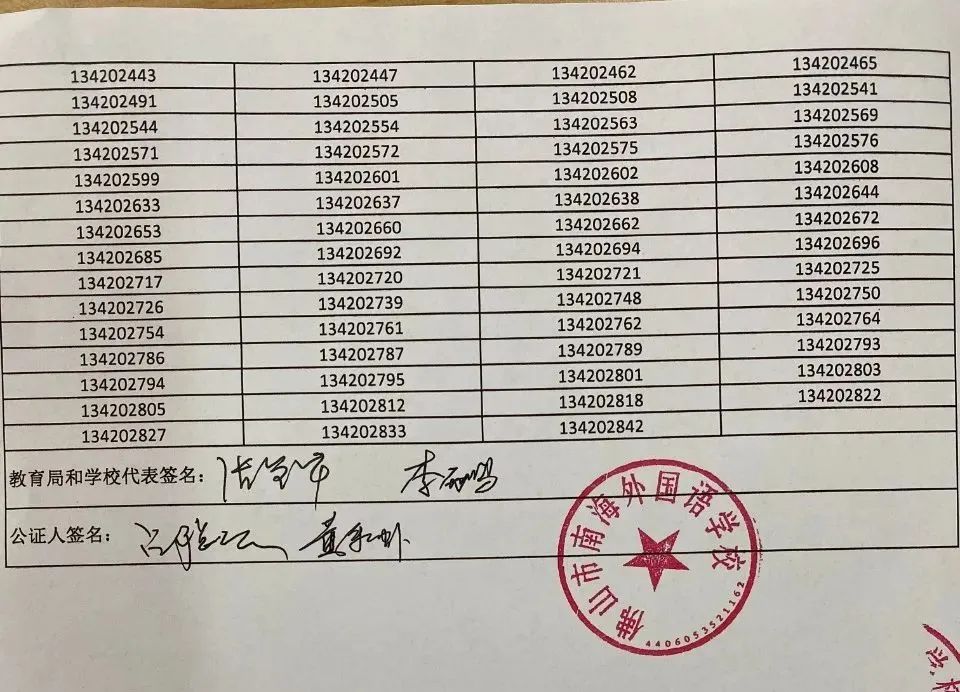 134202443 134202447 134202462 134202465
134202491 134202505 134202508 134202541
134202544 134202554 134202563 134202569
134202571 134202572 134202575 134202576
134202599 134202601 134202602 134202608
134202633 134202637 134202638 134202644
134202653 134202660 134202662 134202672
134202685 134202692 134202694 134202696
134202717 134202720 134202721 134202725
134202726 134202739 134202748 134202750
134202754 134202761 134202762 134202764
134202786 134202787 134202789 134202793
134202794 134202795 134202801 134202803
134202805 134202812 134202818 134202822
134202827 134202833 134202842
教育局和学校代表签名：
公证人签名：
佛山市南海外国语学校
4406053521162